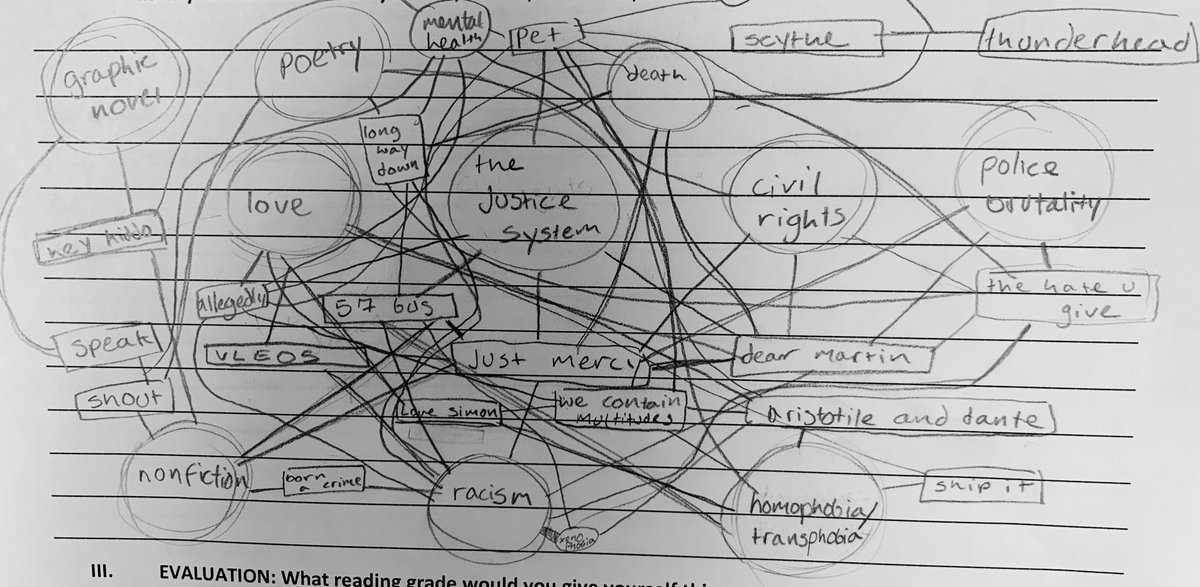 mental
health
pet
scythe
thunderhead
graphic
novel
poetry
death
long
way
down
love
the
Justice
system
civil
rights
police
brutality
hey kiddo
allegedly
57 bus
the hate u
give
speak
VLEOS
Just mercy
dear martin
shout
Love simon
we contain
multitudes
aristotile and dante
nonfiction
born
a crime
racism
xeno
phobia
homophobia/
transphobia
ship it
III. EVALUATION: What reading grade would you give yourself thi